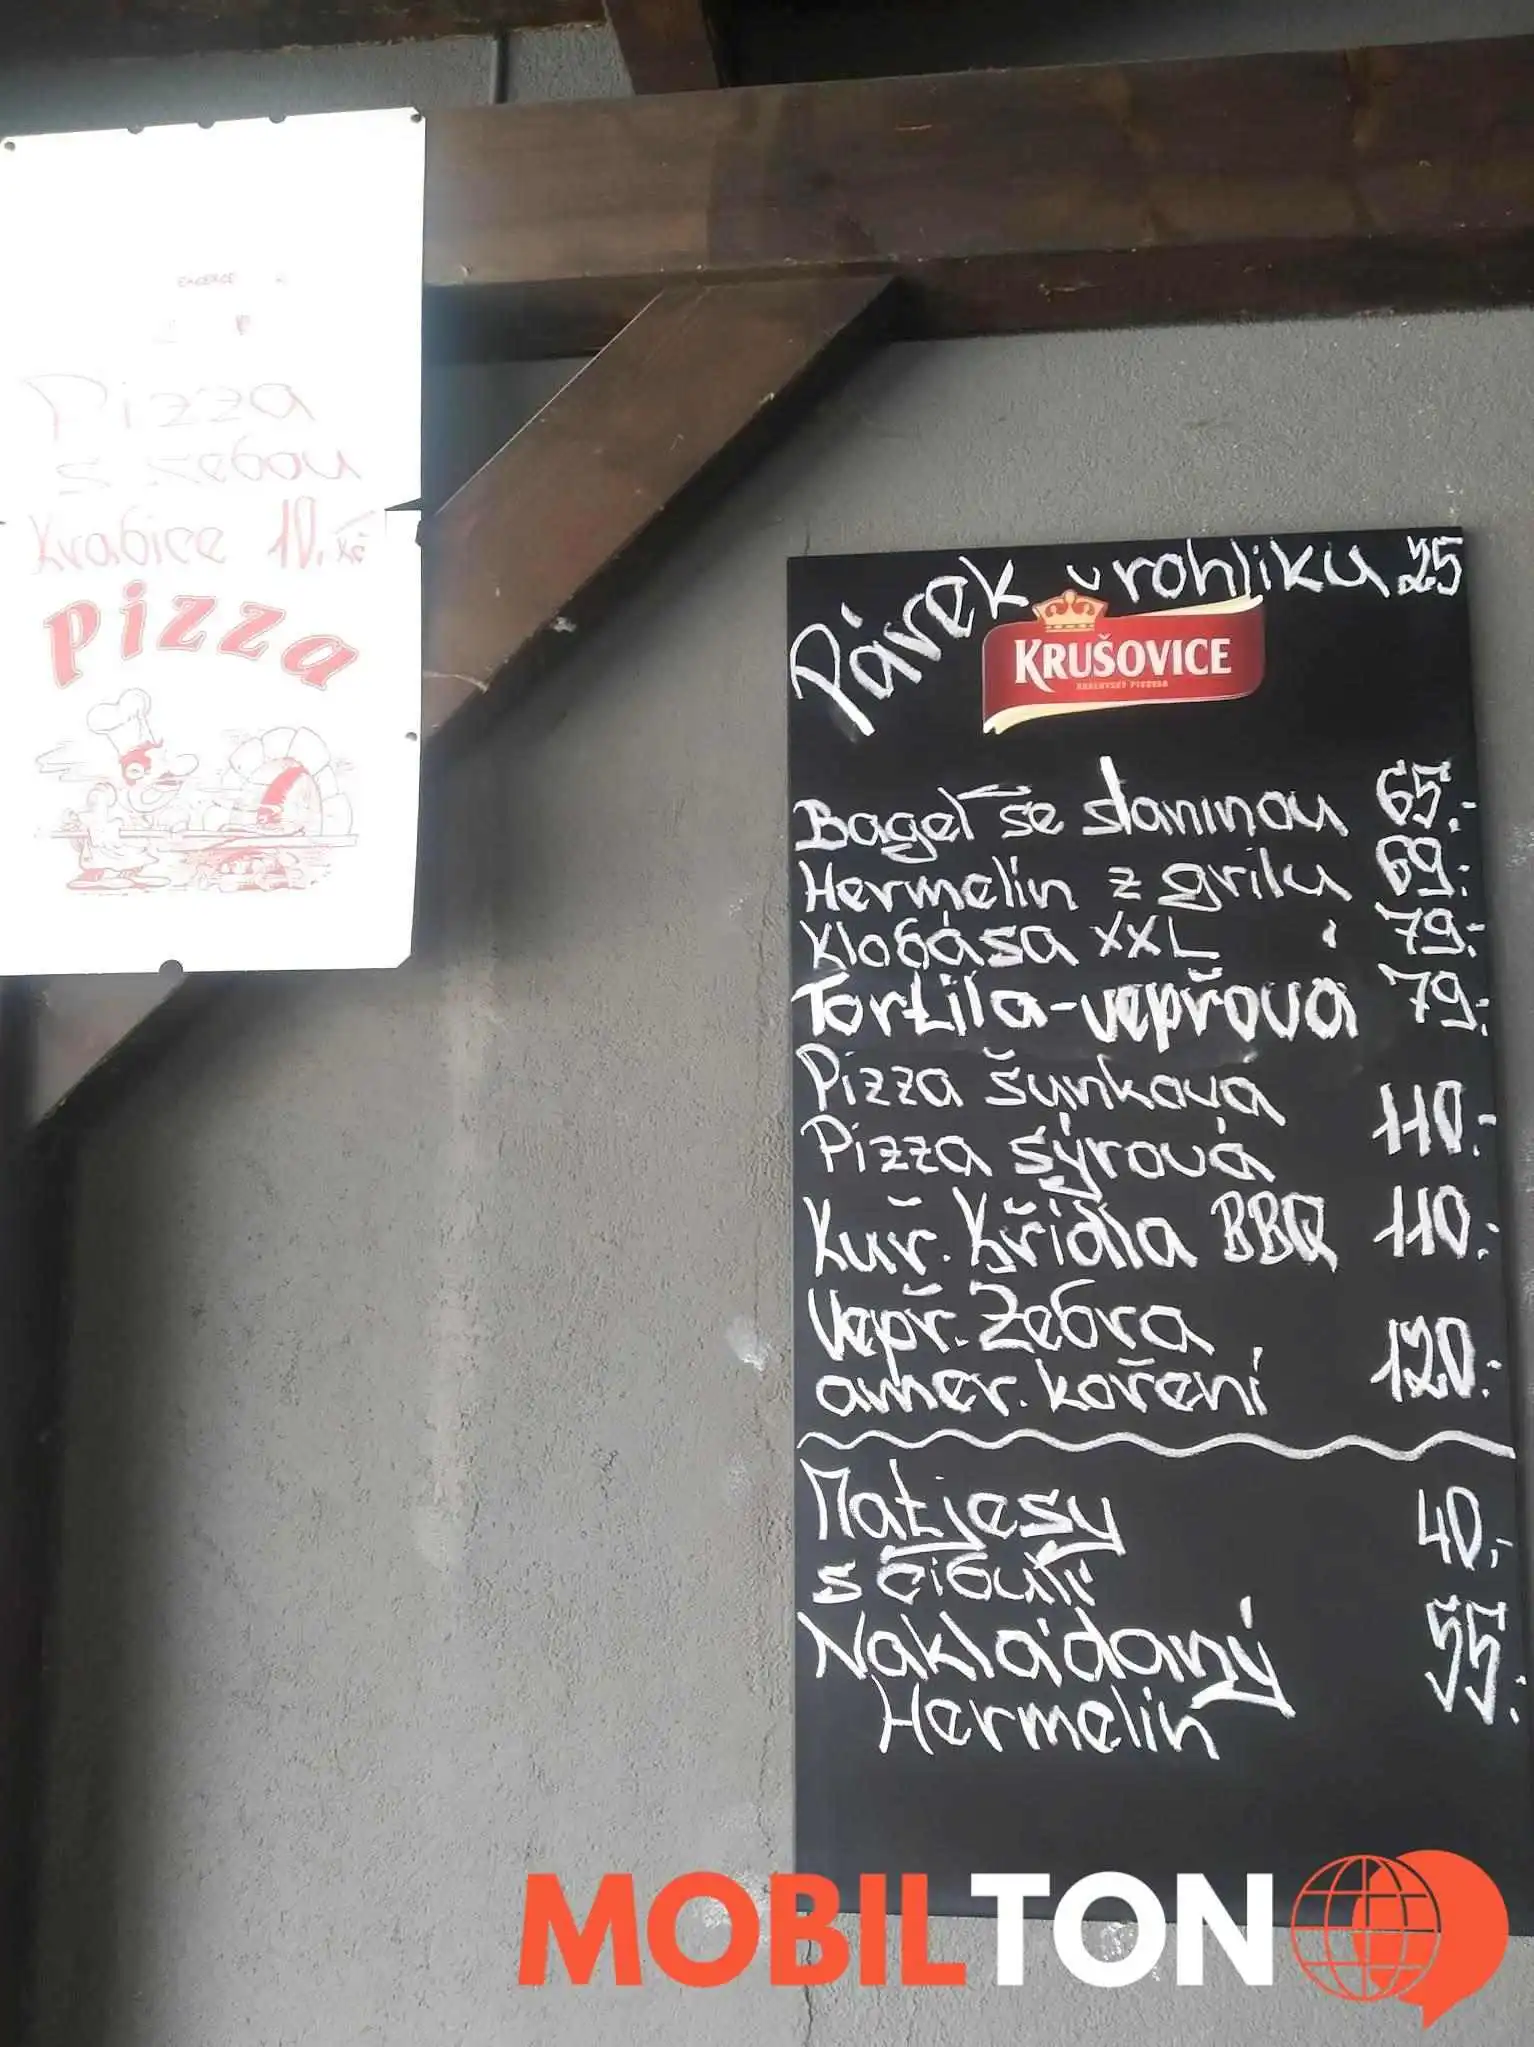 Pizza
s sebou
Krabice 10,- Kč
Pizza
Párek v rohliku 25
KRUŠOVICE
Bagel se slaninou 65,-
Hermelín z grilu 69,-
Klobása XXL 79,-
Tortila-vepřová 79,-
Pizza šunková
Pizza sýrová 110,-
Kuř. křídla BBQ 110,-
Vepř. Žebra
amer. koření 120,-
Matjesy 40,-
s cibulí
Nakládaný 55,-
Hermelín
MOBILTON